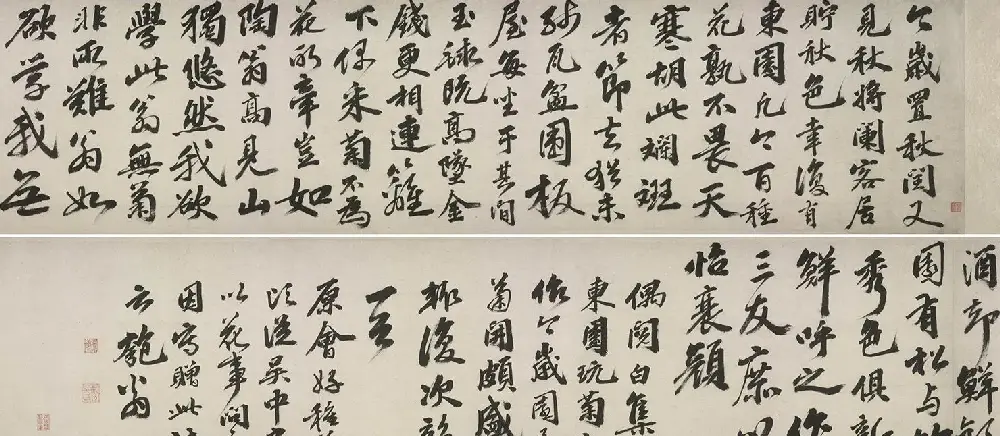 今歲置秋閏又
見秋將闌客居
貯秋色幸復有
東園凡今百種
花孰不畏天
寒胡此斕斑
者節去猶未
殘瓦盆圍板
屋每坐于其間
玉既高墜金
錢更相連籬
下采菊不為
花所牽豈如
陶翁高見山
獨悠然我欲
學此翁無菊
非所難翁如
欲學我無
酒却鮮
園有松與
秀色俱新
鮮呼之作
三友庶以
怡衰顏
偶閱白集
東園玩菊
今歲園
菊開頗盛
輒復次韻
一首
原會好種
從吳中
以花事問
因寫贈此
云匏翁